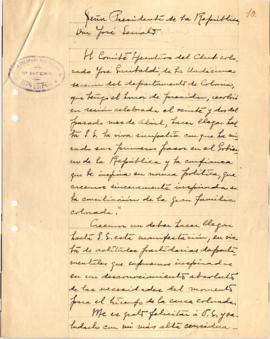 Señor Presidente de la República
Don José Serrato
El Comité Ejecutivo del Club colo
rado José Garibaldi, de la Undécima
sección del departamento de Colonia,
que tengo el honor de presidir, resolvió
en sesión celebrada el veinte y dos del
pasado mes de Abril, hacer llegar hasta
S.E. la viva simpatía con que ha mi
rado sus primeros pasos en el Gobier
no de la República y la confianza
que le inspira su norma política, que
creemos sinceramente inspirada en
la conciliación de la gran familia
colorada.
Creemos un deber hacer llegar
hasta S.E. esta manifestación, en vis
ta de actitudes partidarias departa
mentales que suponemos inspiradas
en un desconocimiento absoluto
de las necesidades del momento
para el triunfo de la causa colorada.
Me es grato felicitar a S.E. y sa
ludarlo con mi más alta considera